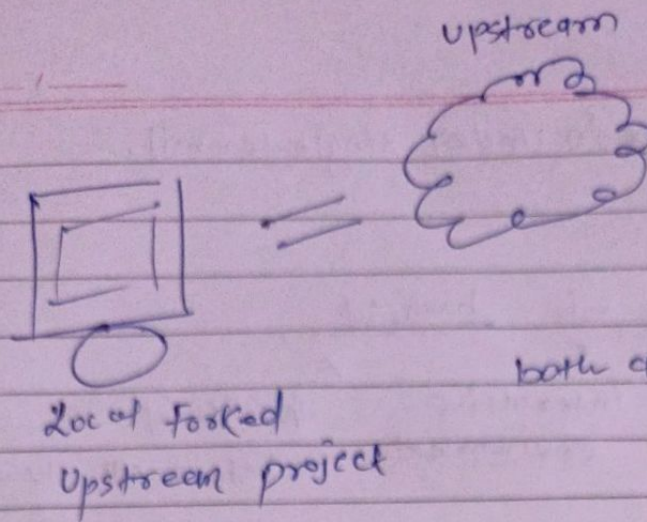 Upstream
both
Local Forked
Upstream project